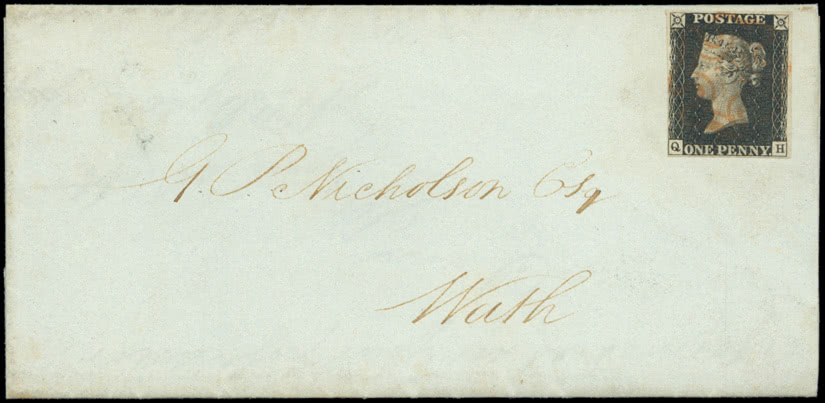 POSTAGE
Q ONE PENNY. H
G. P. Nicholson Esq
Wath